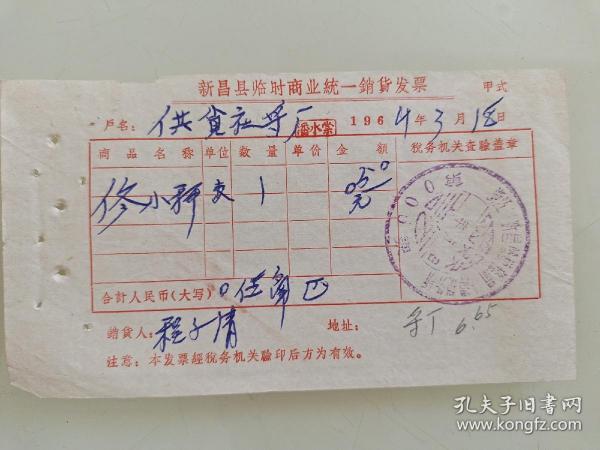 新昌县临时商业統一銷貨发票 甲式
戶名: 供 社 厂 潘水棠 1964年3月18日
商品名称 单位 数量 单价 金額 税务机关查驗盖章
修小秤 支 1 050元
合計人民币(大写) 0伍角正
銷貨人: 程 地址:
6.65
注意:本发票經稅务机关驗印后方为有效。
孔夫子旧书网
www.kongfz.com